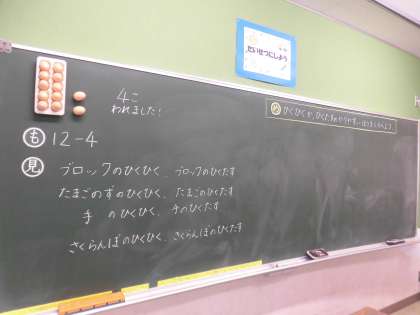 たいせつにしよう
4こ
われました!
め ひくひくか、ひくたすか
も 12-4
見 ブロックのひくひく、ブロックのひくたす
たまごのずのひくひく、たまごのひくたす
手のひくひく、手のひくたす
さくらんぼのひくひく、さくらんぼのひくたす